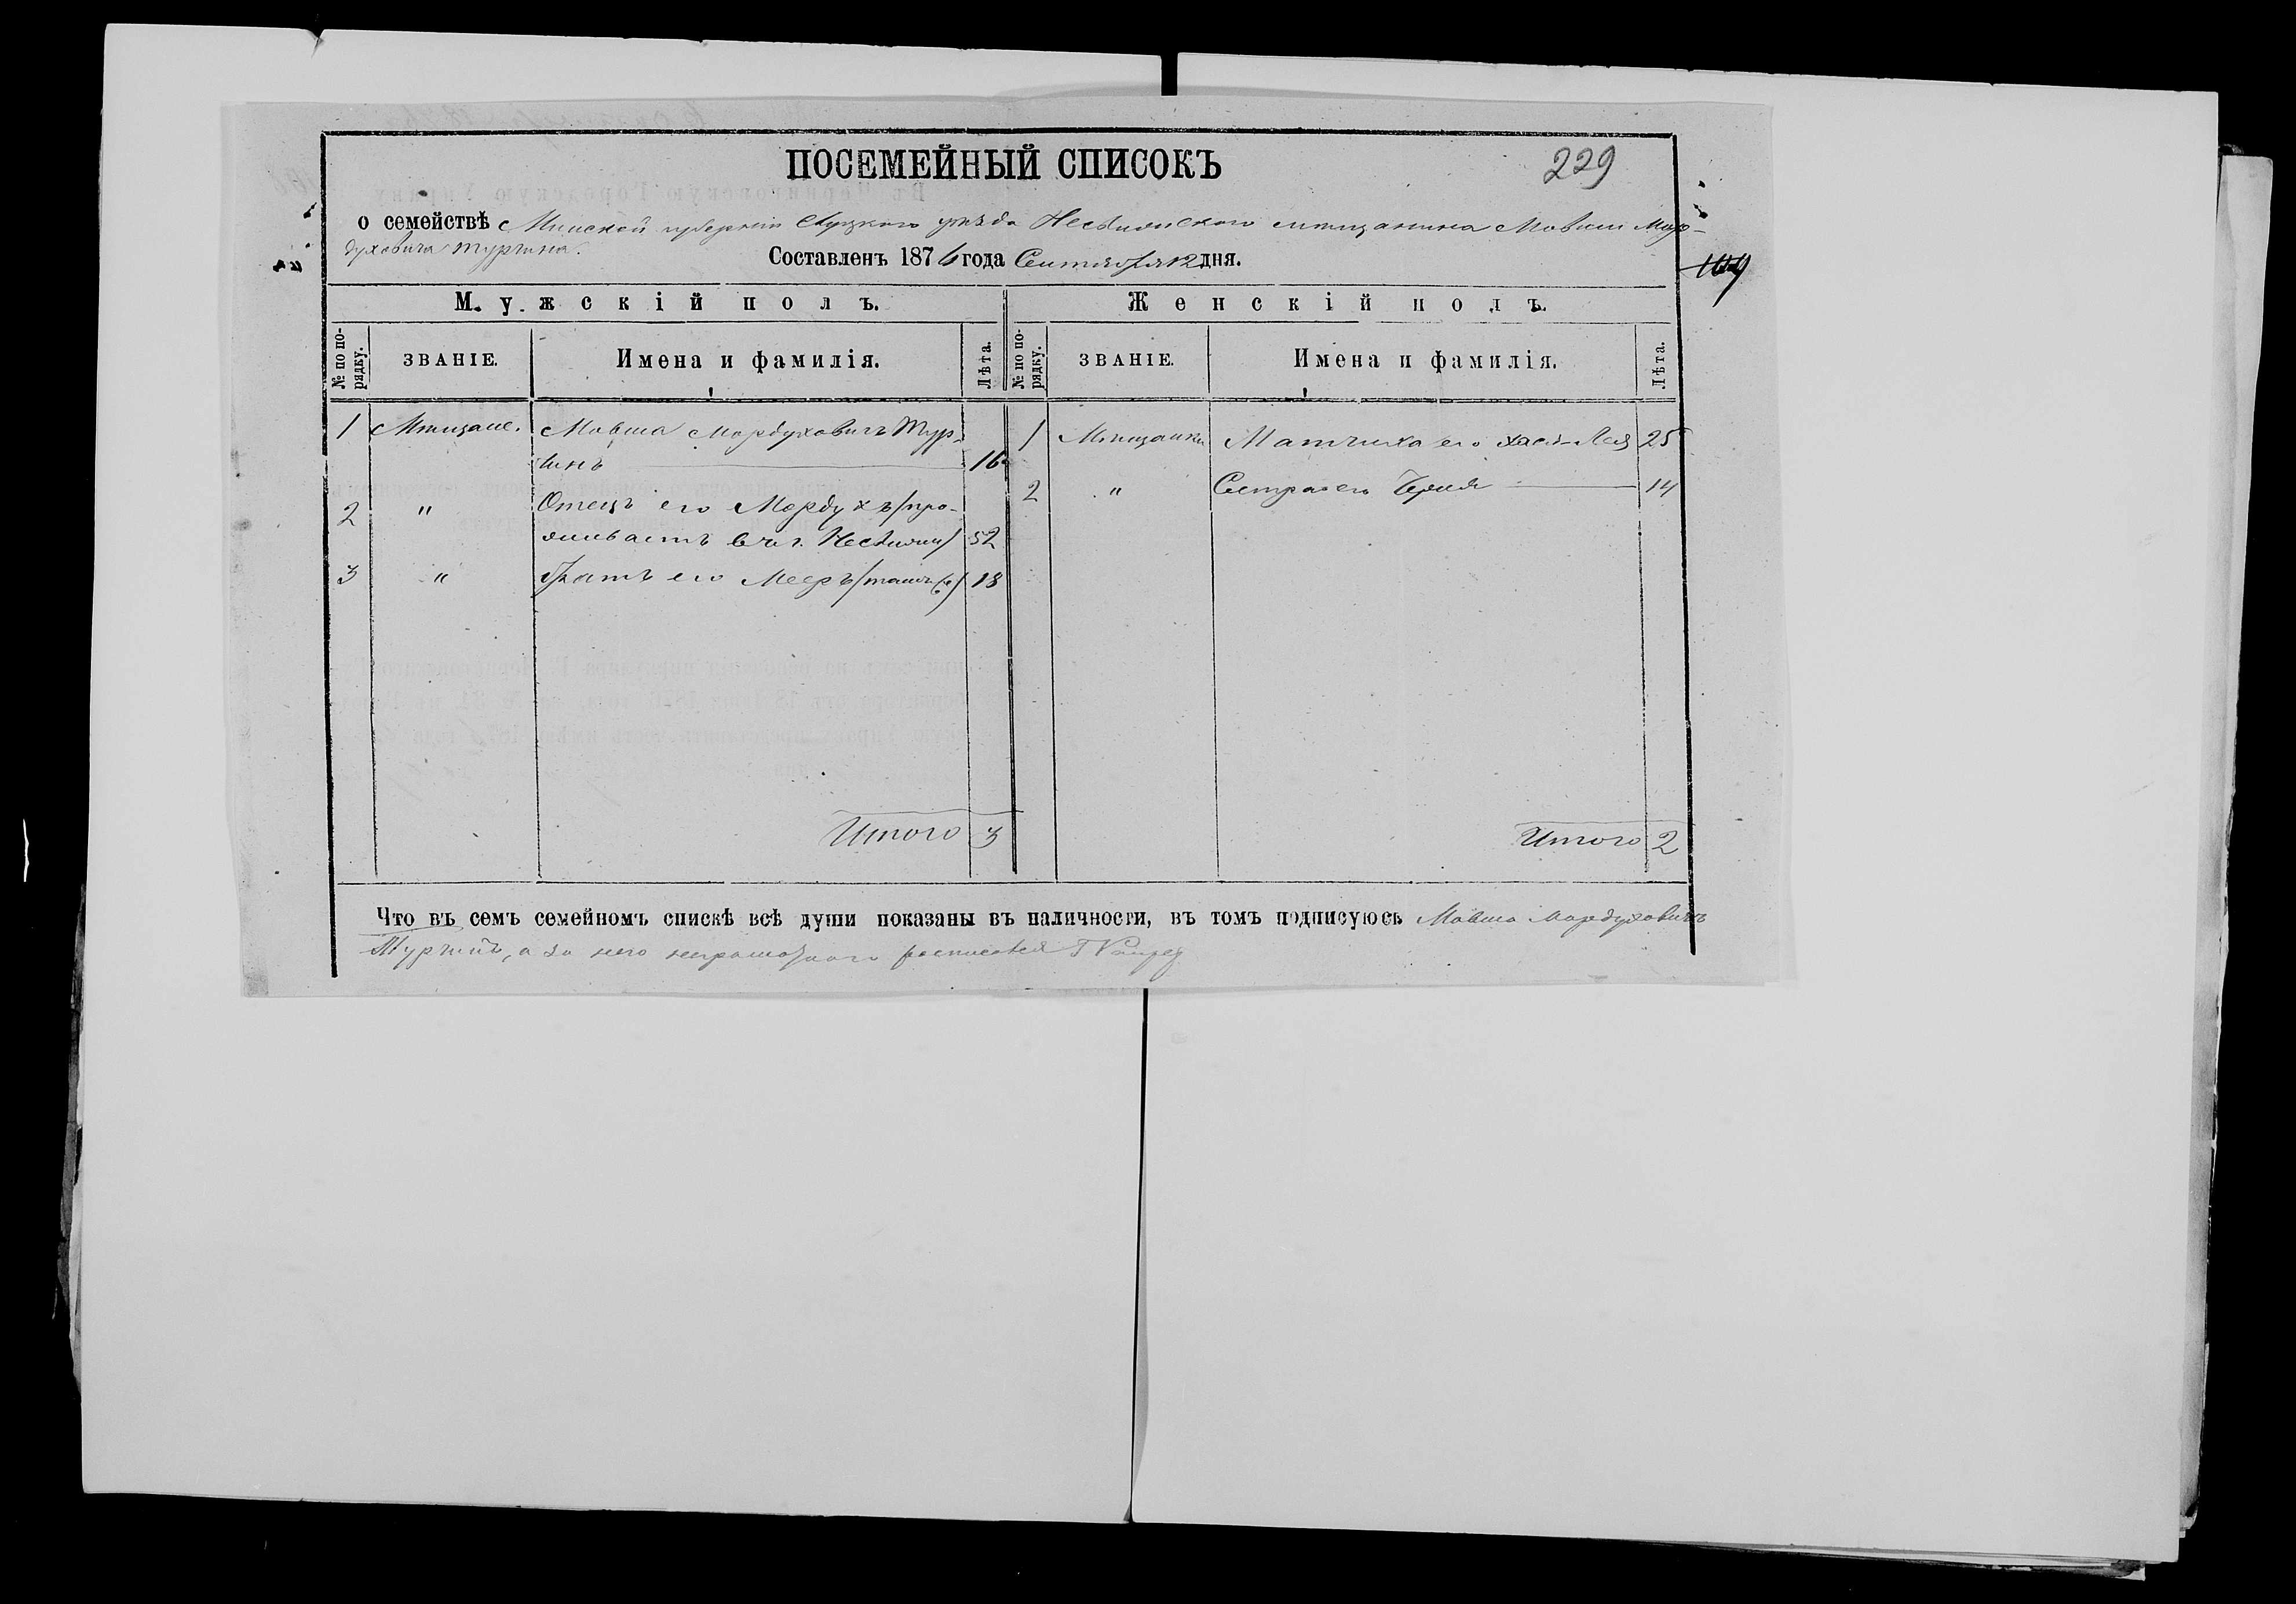 ПОСЕМЕЙНЫЙ СПИСОКЪ
229
о семействѣ Минской губерніи Слуцкого уѣзда Несвижского мѣщанина Мовши Мор-
духовича Турчина.
Составленъ 1876 года Сентября 12 дня.
Мужскій полъ.
Женскій полъ.
№ по по-
рядку.
ЗВАНІЕ.
Имена и фамилія.
Лѣта.
№ по по-
рядку.
ЗВАНІЕ.
Имена и фамилія.
Лѣта.
1 Мѣщане. Мовша Мордуховичъ Тур-
чинъ 16
2 " Отецъ его Мордухъ (про-
живаетъ въ г. Несвижи) 52
3 " Братъ его Мееръ (тамъ) 18
Итого 3
1 Мѣщанки Мачиха его Хася-Лея 25
2 " Сестра его 14
Итого 2
Что въ семъ семейномъ спискѣ всѣ души показаны въ наличности, въ томъ подписуюсь Мовша Мордуховичъ
Турчинъ, а за него неграмотного росписался